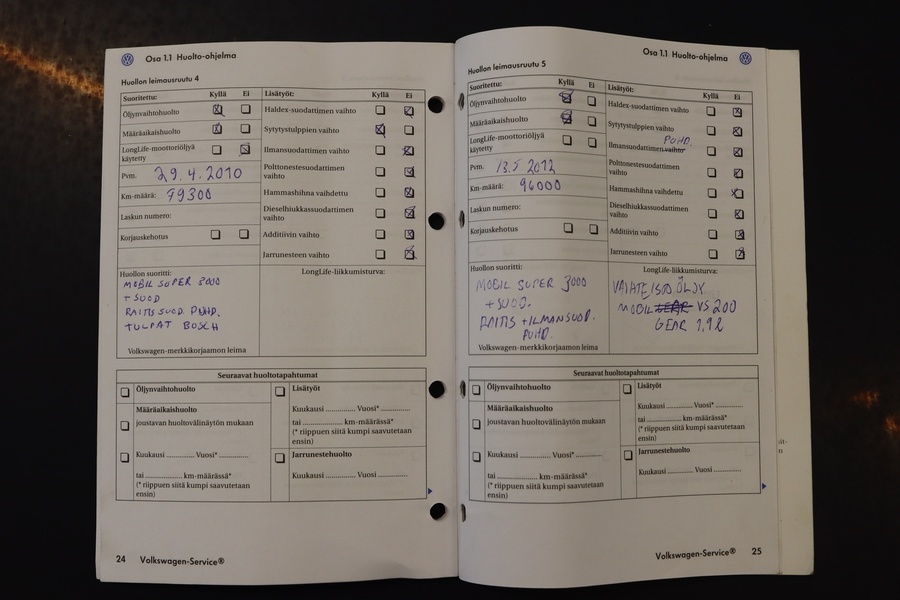 Osa 1.1 Huolto-ohjelma
Huollon leimausruutu 4
Suoritettu: Kyllä Ei
Öljynvaihtohuolto
Määräaikaishuolto
LongLife-moottoriöljyä
käytetty
Pvm. 29.4.2010
Km-määrä: 99300
Laskun numero:
Korjauskehotus
Lisätyöt: Kyllä Ei
Haldex-suodattimen vaihto
Sytytystulppien vaihto
Ilmansuodattimen vaihto
Polttonestesuodattimen
vaihto
Hammashihna vaihdettu
Dieselhiukkassuodattimen
vaihto
Additiivin vaihto
Jarrunesteen vaihto
Huollon suoritti:
MOBIL SUPER 3000
+ SUOD
RAITIS SUOD. PUHD.
TULPAT BOSCH
Volkswagen-merkkikorjaamon leima
LongLife-liikkumisturva:
Seuraavat huoltotapahtumat
Öljynvaihtohuolto
Määräaikaishuolto
joustavan huoltovälinäytön mukaan
Kuukausi .............. Vuosi* ..............
tai .............. km-määrässä*
(* riippuen siitä kumpi saavutetaan
ensin)
Lisätyöt
Kuukausi .............. Vuosi* ..............
tai .............. km-määrässä*
(* riippuen siitä kumpi saavutetaan
ensin)
Jarrunestehuolto
Kuukausi .............. Vuosi ..............
24 Volkswagen-Service®
Osa 1.1 Huolto-ohjelma
Huollon leimausruutu 5
Suoritettu: Kyllä Ei
Öljynvaihtohuolto
Määräaikaishuolto
LongLife-moottoriöljyä
käytetty
Pvm. 13.5 2012
Km-määrä: 96000
Laskun numero:
Korjauskehotus
Lisätyöt: Kyllä Ei
Haldex-suodattimen vaihto
Sytytystulppien vaihto
PUHD.
Ilmansuodattimen vaihto
Polttonestesuodattimen
vaihto
Hammashihna vaihdettu
Dieselhiukkassuodattimen
vaihto
Additiivin vaihto
Jarrunesteen vaihto
Huollon suoritti:
MOBIL SUPER 3000
+ SUOD.
RAITIS + ILMANSUOD.
PUHD.
Volkswagen-merkkikorjaamon leima
LongLife-liikkumisturva:
MOBIL GEAR VS 200
GEAR 1,92
Seuraavat huoltotapahtumat
Öljynvaihtohuolto
Määräaikaishuolto
joustavan huoltovälinäytön mukaan
Kuukausi .............. Vuosi* ..............
tai .............. km-määrässä*
(* riippuen siitä kumpi saavutetaan
ensin)
Lisätyöt
Kuukausi .............. Vuosi* ..............
tai .............. km-määrässä*
(* riippuen siitä kumpi saavutetaan
ensin)
Jarrunestehuolto
Kuukausi .............. Vuosi ..............
Volkswagen-Service® 25